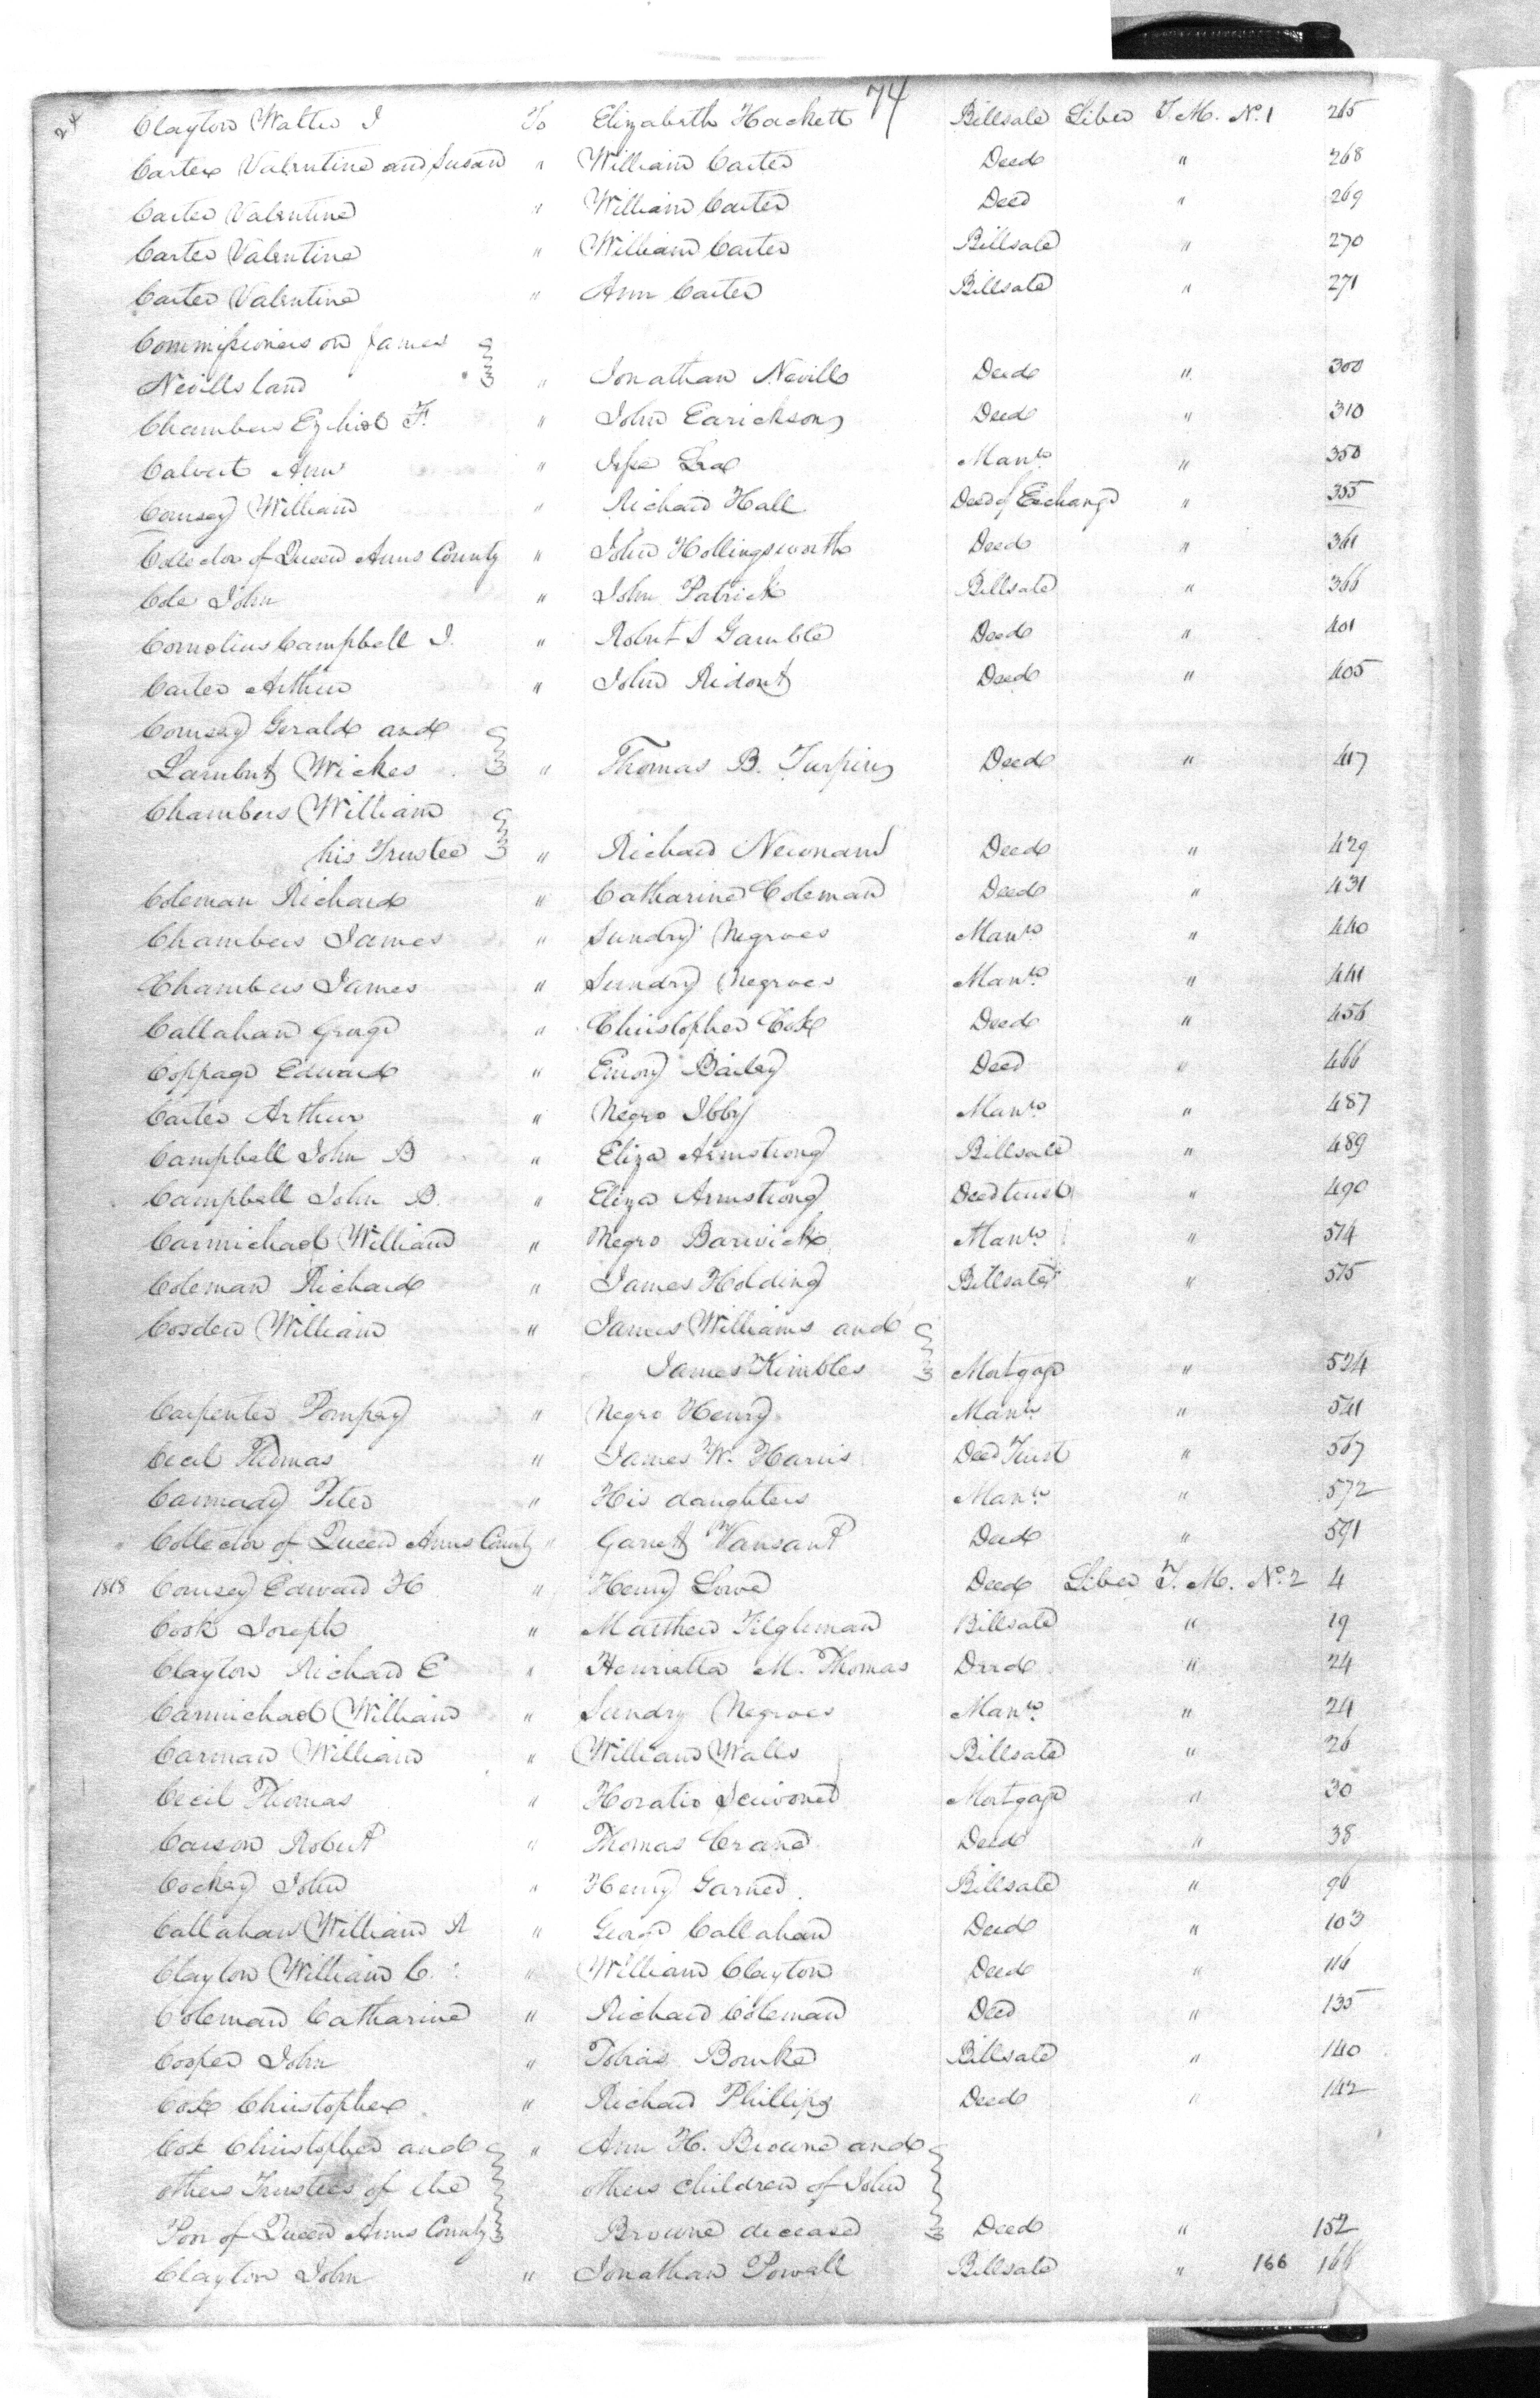 74
24 Clayton Walter J To Elizabeth Hackett Billsale Liber T. M. No. 1 265
Carter Valentine and Susan " William Carter Deed " 268
Carter Valentine " William Carter Deed " 269
Carter Valentine " William Carter Billsale " 270
Carter Valentine " Ann Carter Billsale " 271
Commissioners on James
Nevills land " Jonathan Nevill Deed " 300
Chambers Ezekiel F. " John Earickson Deed " 310
Calvert Ann " Man 350
Comsey William " Richard Hall Deed of Exchange " 355
Collector of Queen Anns County " John Hollingsworth Deed " 361
Cole John " John Patrick Billsale " 366
Cornelius Campbell J. " Robert S Gamble Deed " 401
Carter Arthur " John Ridout Deed " 405
Comsey Gerald and
Lambert Wickes " Thomas B. Turpin Deed " 417
Chambers William
his Trustee " Richard Newnam Deed " 429
Coleman Richard " Catharine Coleman Deed " 431
Chambers James " Sundry Negroes Manto " 440
Chambers James " Sundry Negroes Manto " 441
Callahan George " Christopher Cox Deed " 456
Coppage Edward " Emory Bailey Deed " 466
Carter Arthur " Negro Ibby Manto " 487
Campbell John B " Eliza Armstrong Billsale " 489
Campbell John B. " Eliza Armstrong Deed trust " 490
Carmichael William " Negro Barwick Manto " 514
Coleman Richard " James Holding Billsale " 515
Cosden William " James Williams and
James Kimbles Mortgage " 524
Carpenter Pompey " Negro Henry Manto " 541
Cecil Thomas " James W. Harris Deed Trust " 567
Carmady Peter " His daughters Manto " 572
" Collector of Queen Anns County " Garrett Vansant Deed " 591
1818 Comsey Edward H " Henry Lowe Deed Liber T. M. No. 2 4
Cook Joseph " Matthew Tilghman Billsale " 19
Clayton Richard E " Henrietta M. Thomas Deed " 24
Carmichael William " Sundry Negroes Manto " 24
Carman William " William Walls Billsale " 26
Cecil Thomas " Horatio Mortgage " 30
Carson Robert " Thomas Crane Deed " 38
Cockey John " Henry Garner Billsale " 96
Callahan William R " George Callahan Deed " 103
Clayton William C. " William Clayton Deed " 116
Coleman Catharine " Richard Coleman Deed " 135
Cooper John " Tobias Bourke Billsale " 140
Cox Christopher " Richard Phillips Deed " 142
Cox Christopher and " Ann H. Browne and
others Trustees of the others children of John
Poor of Queen Anns County Browne deceased Deed " 152
Clayton John " Jonathan Powall Billsale " 166 166